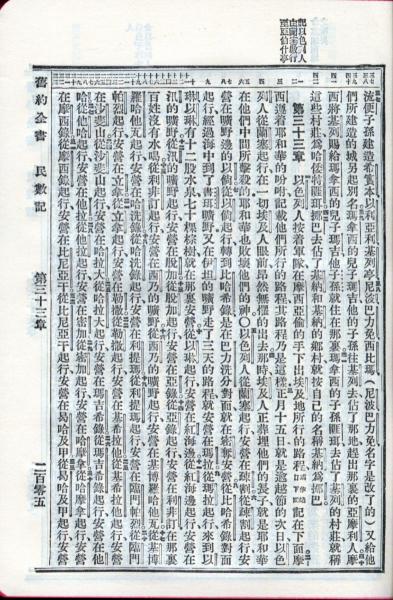 記以色列人
流便子孫建造希實本以利亞利基列亭尼波巴力免西比瑪（尼波巴力免名字是改了的）又給他
們所建造的城另起別名瑪拿西的兒子瑪吉他的子孫往基列去佔了那地趕出那裏的亞摩利人摩
西將基列賜給瑪拿西的兒子瑪吉他子孫就住在那裏瑪拿西的子孫睚珥去佔了基列的村莊就稱
這些村莊為哈倭特睚珥挪巴去佔了基納和基納的鄉村就按自己的名稱基納為挪巴
第三十三章 以色列人按着軍隊在摩西亞倫的手下出埃及地所行的路程記在下面摩
西遵着耶和華的吩咐記載他們所行的路程其路程乃是這樣正月十五日就是逾越節的次日以色
列人從蘭塞起行在一切埃及人眼前昂然無懼的出去那時埃及人正葬埋他們的長子就是耶和華
在他們中間所擊殺的耶和華也敗壞他們的神○以色列人從蘭塞起行安營在疎割從疎割起行安
營在曠野邊的以倘從以倘起行轉到比哈希錄是在巴力洗分對面就在密奪安營從比哈希錄對面
起行經過海中到了書珥曠野又在伊坦的曠野走了三天的路程就安營在瑪拉從瑪拉起行來到以
琳以琳有十二股水泉七十棵棕樹就在那裏安營從以琳起行安營在紅海邊從紅海邊起行安營在
汛的曠野從汛的曠野起行安營在脫加從脫加起行安營在亞錄從亞錄起行安營在利非訂在那裏
百姓沒有水喝從利非訂起行安營在西乃的曠野從西乃的曠野起行安營在基博羅哈他瓦從基博
羅哈他瓦起行安營在哈洗錄從哈洗錄起行安營在利提瑪從利提瑪起行安營在臨門帕烈從臨門
帕烈起行安營在立拿從立拿起行安營在勒撒從勒撒起行安營在基希拉他從基希拉他起行安營
在沙斐山從沙斐山起行安營在哈拉大從哈拉大起行安營在瑪吉希錄從瑪吉希錄起行安營在他
哈從他哈起行安營在他拉從他拉起行安營在密加從密加起行安營在哈摩拿從哈摩拿起行安營
在摩西錄從摩西錄起行安營在比尼亞干從比尼亞干起行安營在曷哈及甲從曷哈及甲起行安營
舊約全書 民數記 第三十三章 二百零五